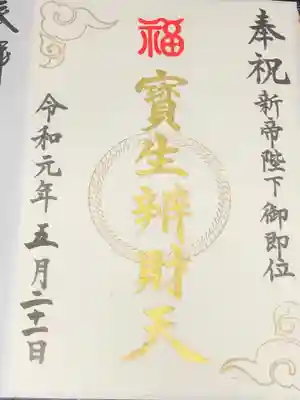 奉祝
新帝陛下御即位
福
寶生辨財天
令和元年五月二十一日